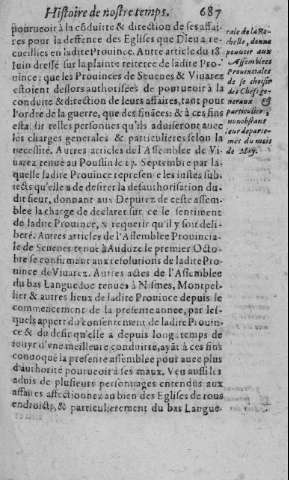 Histoire de nostre temps. 687
pourueoir à la cõduite & direction de ses affai-
res pour la deffence des Eglises que Dieu a re-
cueillies en ladite Prouince. Autre article du 18
Iuin dressé sur la plainte reiteree de ladite Pro-
uince; que les Prouinces de Seuenes & Viuarez
estoient deslors authorisées de pourueoir à la
conduite & direction de leurs affaires, tant pour
l'ordre de la guerre, que des finãces: & à ces fins
esta lir telles personnes qu'ils aduiseront auec
les charges generales & particulieres selon la
necessité. Autres articles de l'Assemblee de Vi-
uarez tenue au Poussin le 17. Septembre par la-
quelle ladite Prouince represen e les iustes sub-
iects qu'elle a de desirer la desauthorisation du-
dit sieur, donnant aux Deputez de ceste assem-
blee la charge de declarer sur ce le sentiment
de ladite Prouince, & requerir qu'il y soit deli-
beré. Autres articles de l'Assemblee Prouincia-
le de Seuenes tenuë à Anduze le premier Octo-
bre se conformant aux resolutions de ladite Pro-
uince de Viuarez. Autres actes de l'Assemblee
du bas Languedoc tenuës à Nismes, Montpel-
lier & autres lieux de ladite Prouince depuis le
commencement de la presente annee, par les-
quels appert du consentement de ladite Prouin-
ce & du desir qu'elle a depuis long temps de
iouyr d'vne meilleure conduitte, ayãt à ces fins
conuoqué la presente assemblee pour auec plus
d'authorité pourueoir à ses maux. Veu aussi les
aduis de plusieurs personnages entendus aux
affaires affectionnez au bien des Eglises de tous
endroicts, & particulierement du bas Langue-
rale de la Ro-
chelle, donne
pouuoir aux
Assemblees
Prouinciales
de se choisir
des Chefs ge-
neraux &
particuliers,
nonobstant
leur departe-
ment du mois
de May.